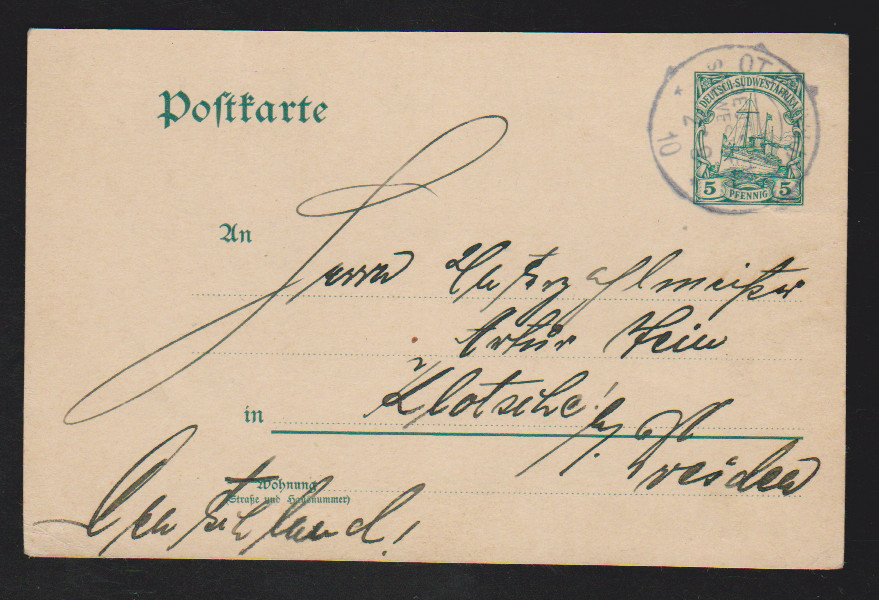 Postkarte
DEUTSCH-SÜDWESTAFRIKA
5 PFENNIG 5
An
Herrn
Artur
in Klotsche! b/
Dresden
Wohnung
(Straße und Hausnummer)
Deutschland!